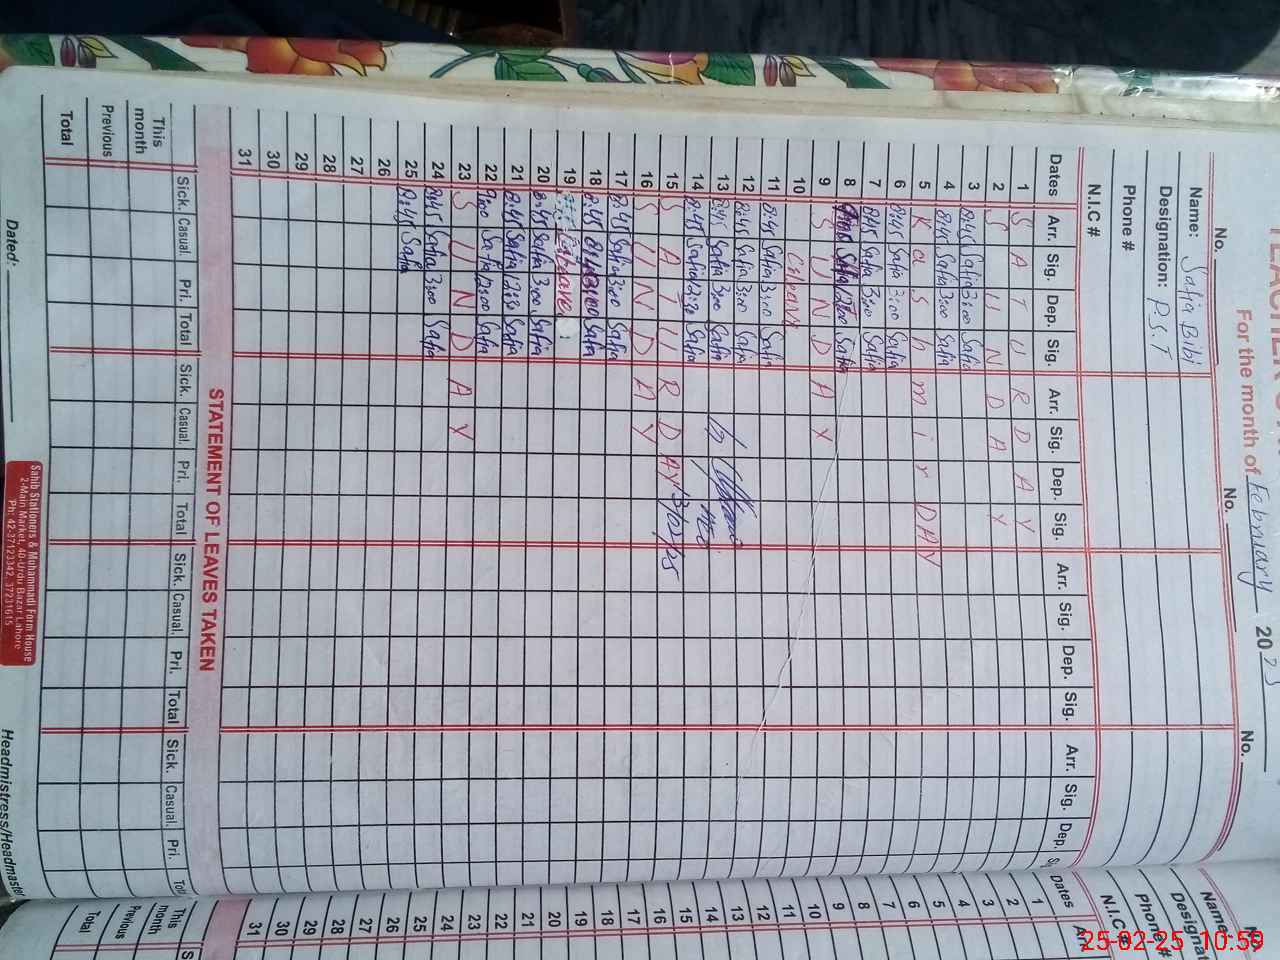 For the month of February 2025
No. No. No.
Name: Safia Bibi
Designation: P.S.T
Phone #
N.I.C #
Dates Arr. Sig. Dep. Sig. Arr. Sig. Dep. Sig. Arr. Sig. Dep. Sig. Arr. Sig. Dep.
1 S A T U R D A Y
2 S U N D A Y
3 8:45 Safia 3:00 Safia
4 8:45 Safia 3:00 Safia
5 K a s h m i r DAY
6 8:45 Safia 3:00 Safia
7 8:45 Safia 3:00 Safia
8 Safia 12:00 Safia
9 S U N D A Y
10 C/leave
11 8:45 Safia 3:00 Safia
12 8:45 Safia 3:00 Safia
13 8:45 Safia 3:00 Safia
14 8:45 Safia 12:30 Safia
15 S A T U R D A Y
16 S U N D A Y
17 8:45 Safia 3:00 Safia
18 8:45 3:00 Safia
19 leave
20 8:45 Safia 3:00 Safia
21 8:45 Safia 12:30 Safia
22 9:00 Safia 12:00 Safia
23 S U N D A Y
24 8:45 Safia 3:00 Safia
25 8:45 Safia
26
27
28
29
30
31
STATEMENT OF LEAVES TAKEN
Sick. Casual. Pri. Total Sick. Casual. Pri. Total Sick. Casual. Pri. Total Sick. Casual. Pri.
This month
Previous
Total
Dated:
Headmistress/Headmaster
Sahib Stationers & Muhammadi Form House
2-Main Market, 40-Urdu Bazar Lahore
Ph: 42-37123342, 37231615
Name
Designat
Phone #
N.I.C #
Dates
1
2
3
4
5
6
7
8
9
10
11
12
13
14
15
16
17
18
19
20
21
22
23
24
25
26
27
28
29
30
31
This month
Previous
Total
25-02-25 10:59